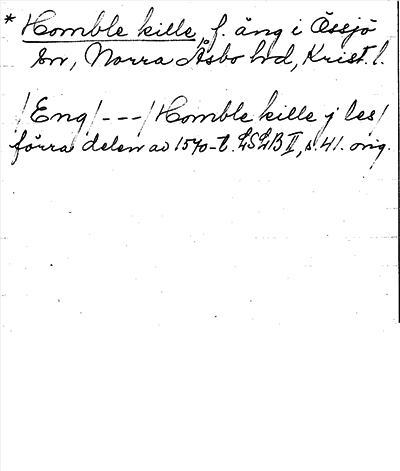 * Homble kille, f. äng i Össjö
sn, Norra Åsbo hd, Krist. l.
/Eng/ --- /Homble kille j les/
förra delen av 1570-t. LSLB II, s. 41. orig.